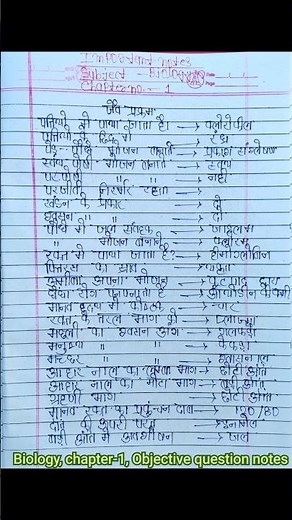 Important notes
Subject - Biology
Chapter no. - 1
जैव प्रक्रम
पत्तियों में पाया जाता है। → क्लोरोफील
पत्तियों के छिद्र में → रंध्र
पेड़-पौधे भोजन बनाते → प्रकाश संश्लेषण
स्वयं पोषी भोजन बनाता → स्वयं
परपोषी " " → नहीं
परजीवी निर्भर रहता →
श्वसन के प्रकार → दो
" " → दो
पौधे में जल संवहक → जाइलम
" भोजन " → फ्लोएम
रक्त में पाया जाता है? → हीमोग्लोबिन
का स्राव →
अमीबा अपना भोजन → कूटपाद द्वारा
रोग → आयोडीन की कमी
मानव हृदय में कोष्ठक → चार
रक्त के तरल भाग → प्लाज्मा
मछली का श्वसन अंग → गलफड़ा
मनुष्य " → फेफड़ा
मच्छर " →
आहार नाल का लम्बा भाग → छोटी आंत
आहार नाल का मोटा भाग → बड़ी आंत
ग्रहणी भाग → छोटी आंत
मानव रक्त का प्रकुंचन दाब → 120/80
दाँत की ऊपरी परत → इनामेल
बड़ी आंत में अवशोषण → जल
Biology, chapter-1, Objective question notes